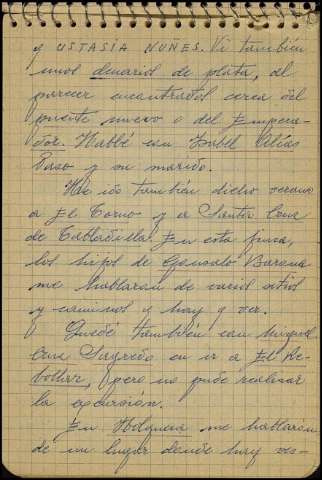 y USTASÍA NUÑES. Vi también
unos denarios de plata, al
parecer encontrados cerca del
puente nuevo o del Empera-
dor. Hablé con Isabel Olías
Paso y su marido.
también dicho verano
a El Torno y a Santa Cruz
de Tabladilla. En esta finca,
los hijos de Gonzalo Barona
me hablaron de varios sitios
y caminos q hay q ver.
Quedé también con Miguel
Cruz Sagredo en ir a El Re-
bollar, pero no pude realizar
la excursión.
En Holguera me hablaron
de un lugar donde hay res-